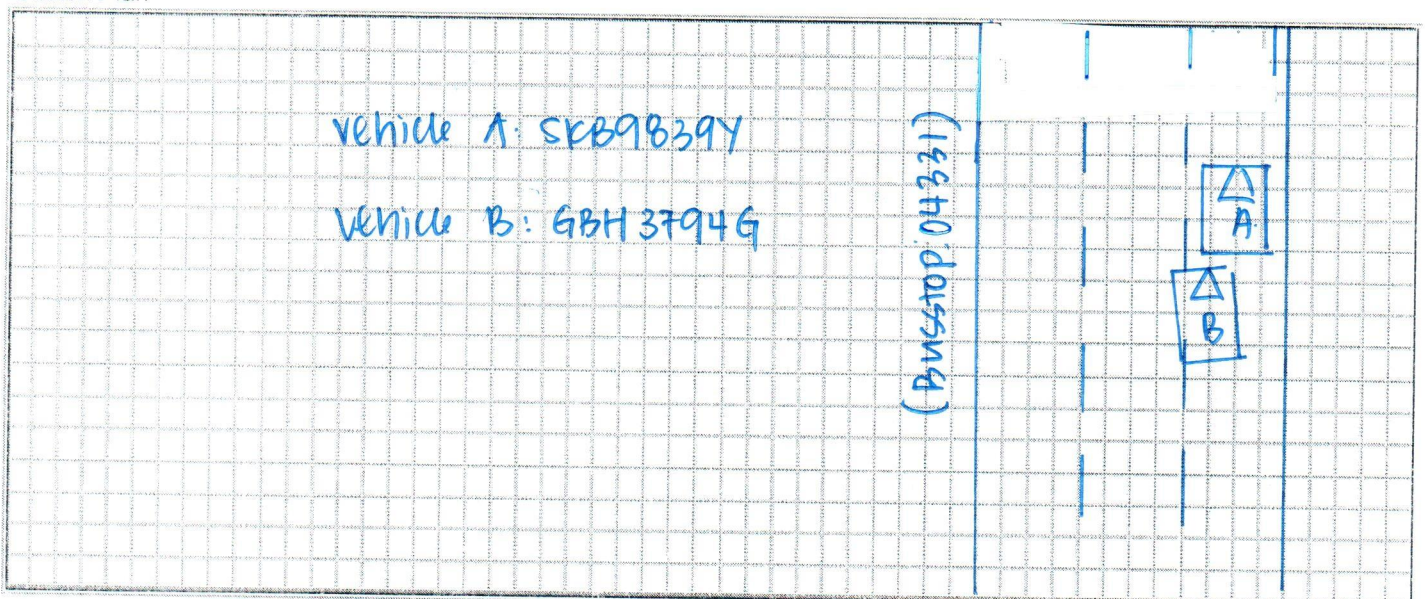 vehicle A: SKB9839Y
vehicle B: GBH3794G
(Busstop: 04331)
A
B